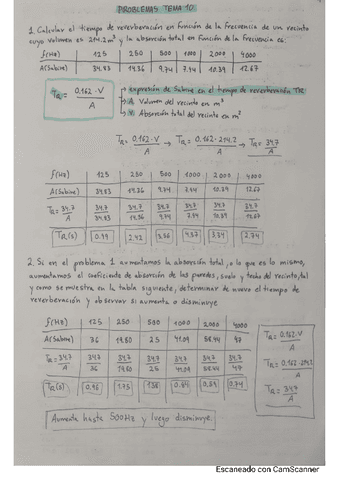 PROBLEMAS TEMA 10
1. Calcular el tiempo de reverberación en función de la frecuencia de un recinto
cuyo volumen es 214.2 m³ y la absorción total en función de la frecuencia es:
f(Hz) 125 250 500 1000 2000 4000
A(Sabine) 34.83 14.36 9.74 7.94 10.39 12.67
TR = 0.162·V / A
expresión de Sabine en el tiempo de reverberación TR
A Volumen del recinto en m³
V Absorción total del recinto en m²
TR = 0.162·V / A → TR = 0.162·214.2 / A → TR = 34.7 / A
f(Hz) 125 250 500 1000 2000 4000
A(Sabine) 34.83 14.36 9.74 7.94 10.39 12.67
TR = 34.7 / A 34.7 / 34.83 34.7 / 14.36 34.7 / 9.74 34.7 / 7.94 34.7 / 10.39 34.7 / 12.67
TR(s) 0.99 2.42 3.56 4.37 3.34 2.74
2. Si en el problema 1 aumentamos la absorción total, o lo que es lo mismo,
aumentamos el coeficiente de absorción de las paredes, suelo y techo del recinto, tal
y como se muestra en la tabla siguiente, determinar de nuevo el tiempo de
reverberación y observar si aumenta o disminuye
f(Hz) 125 250 500 1000 2000 4000
A(Sabine) 36 19.80 25 41.09 58.44 47
TR = 34.7 / A 34.7 / 36 34.7 / 19.80 34.7 / 25 34.7 / 41.09 34.7 / 58.44 34.7 / 47
TR(s) 0.96 1.75 1.38 0.84 0.59 0.74
TR = 0.162·V / A
TR = 0.162·214.2 / A
TR = 34.7 / A
Aumenta hasta 500Hz y luego disminuye.
Escaneado con CamScanner